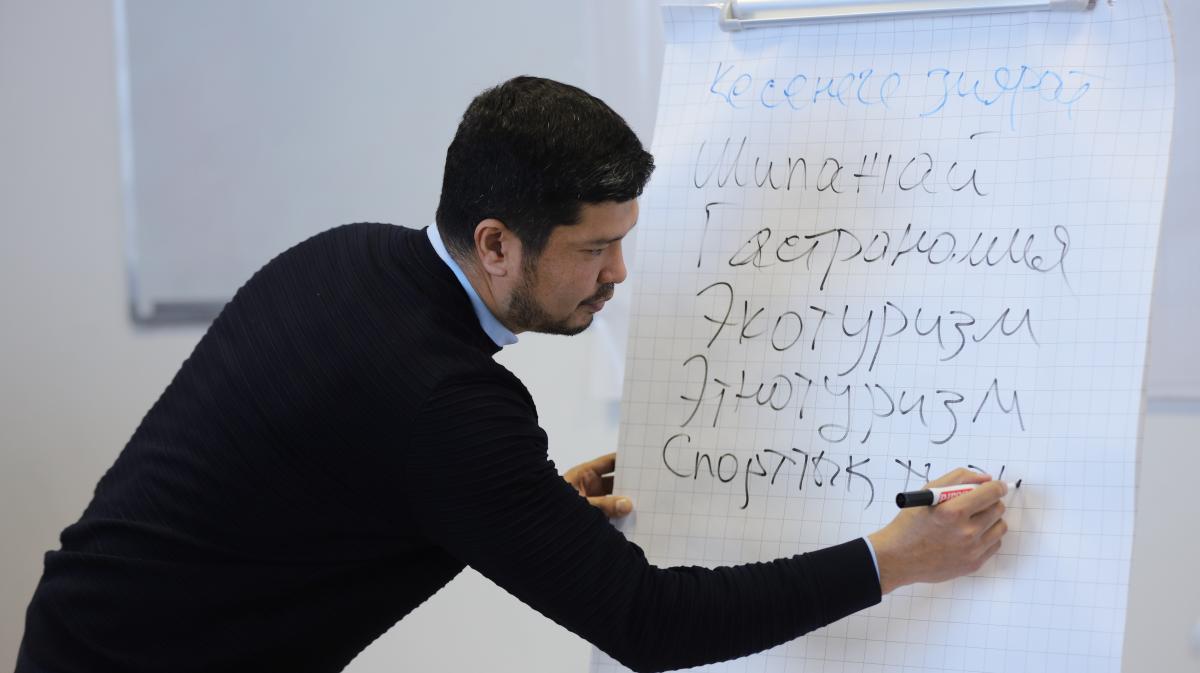 Кесенеге зиярат
Шипажай
Гастрономия
Экотуризм
Этнотуризм
Спорттық